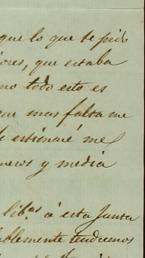 que lo que te pido
ores, que estaba
no todo esto es
que mas falta me
estimaré me
neros y media
lib.as á esta Junta
blemente tendremos